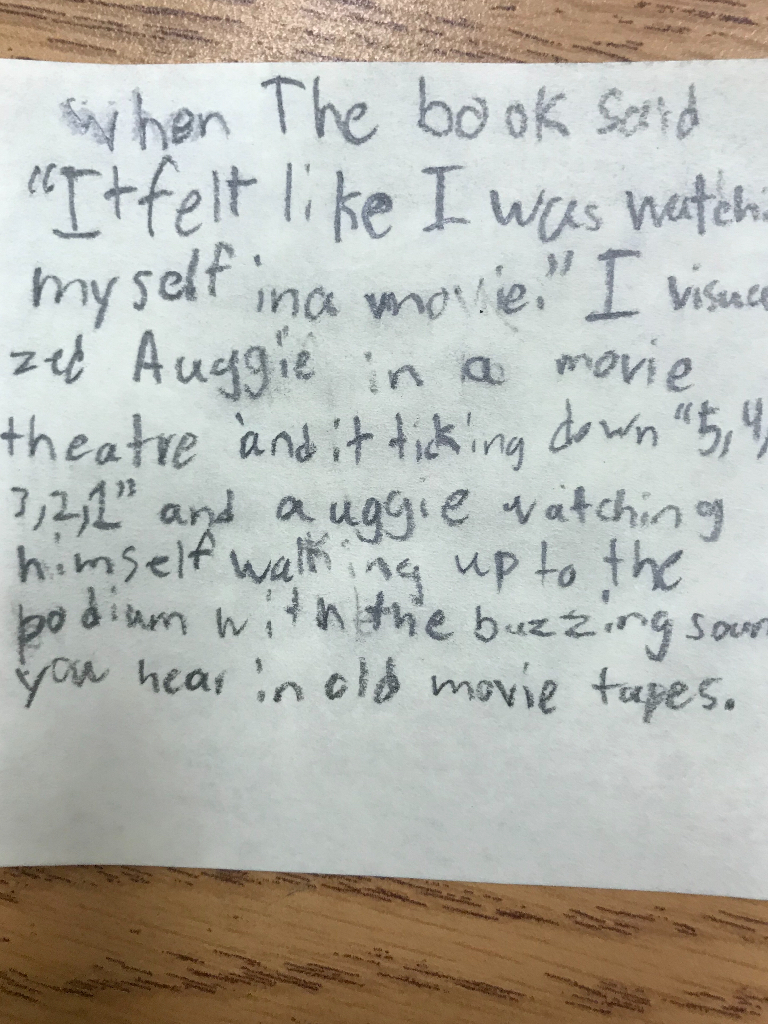 when The book said
"It felt like I was watchi
myself in a movie." I visua
zed Auggie in a movie
theatre and it ticking down "5, 4,
3, 2, 1" and auggie watching
himself walking up to the
podium with the buzzing soun
you hear in old movie tapes.